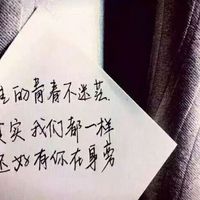 的青春不迷茫
其实我们都一样
还好有你在身旁